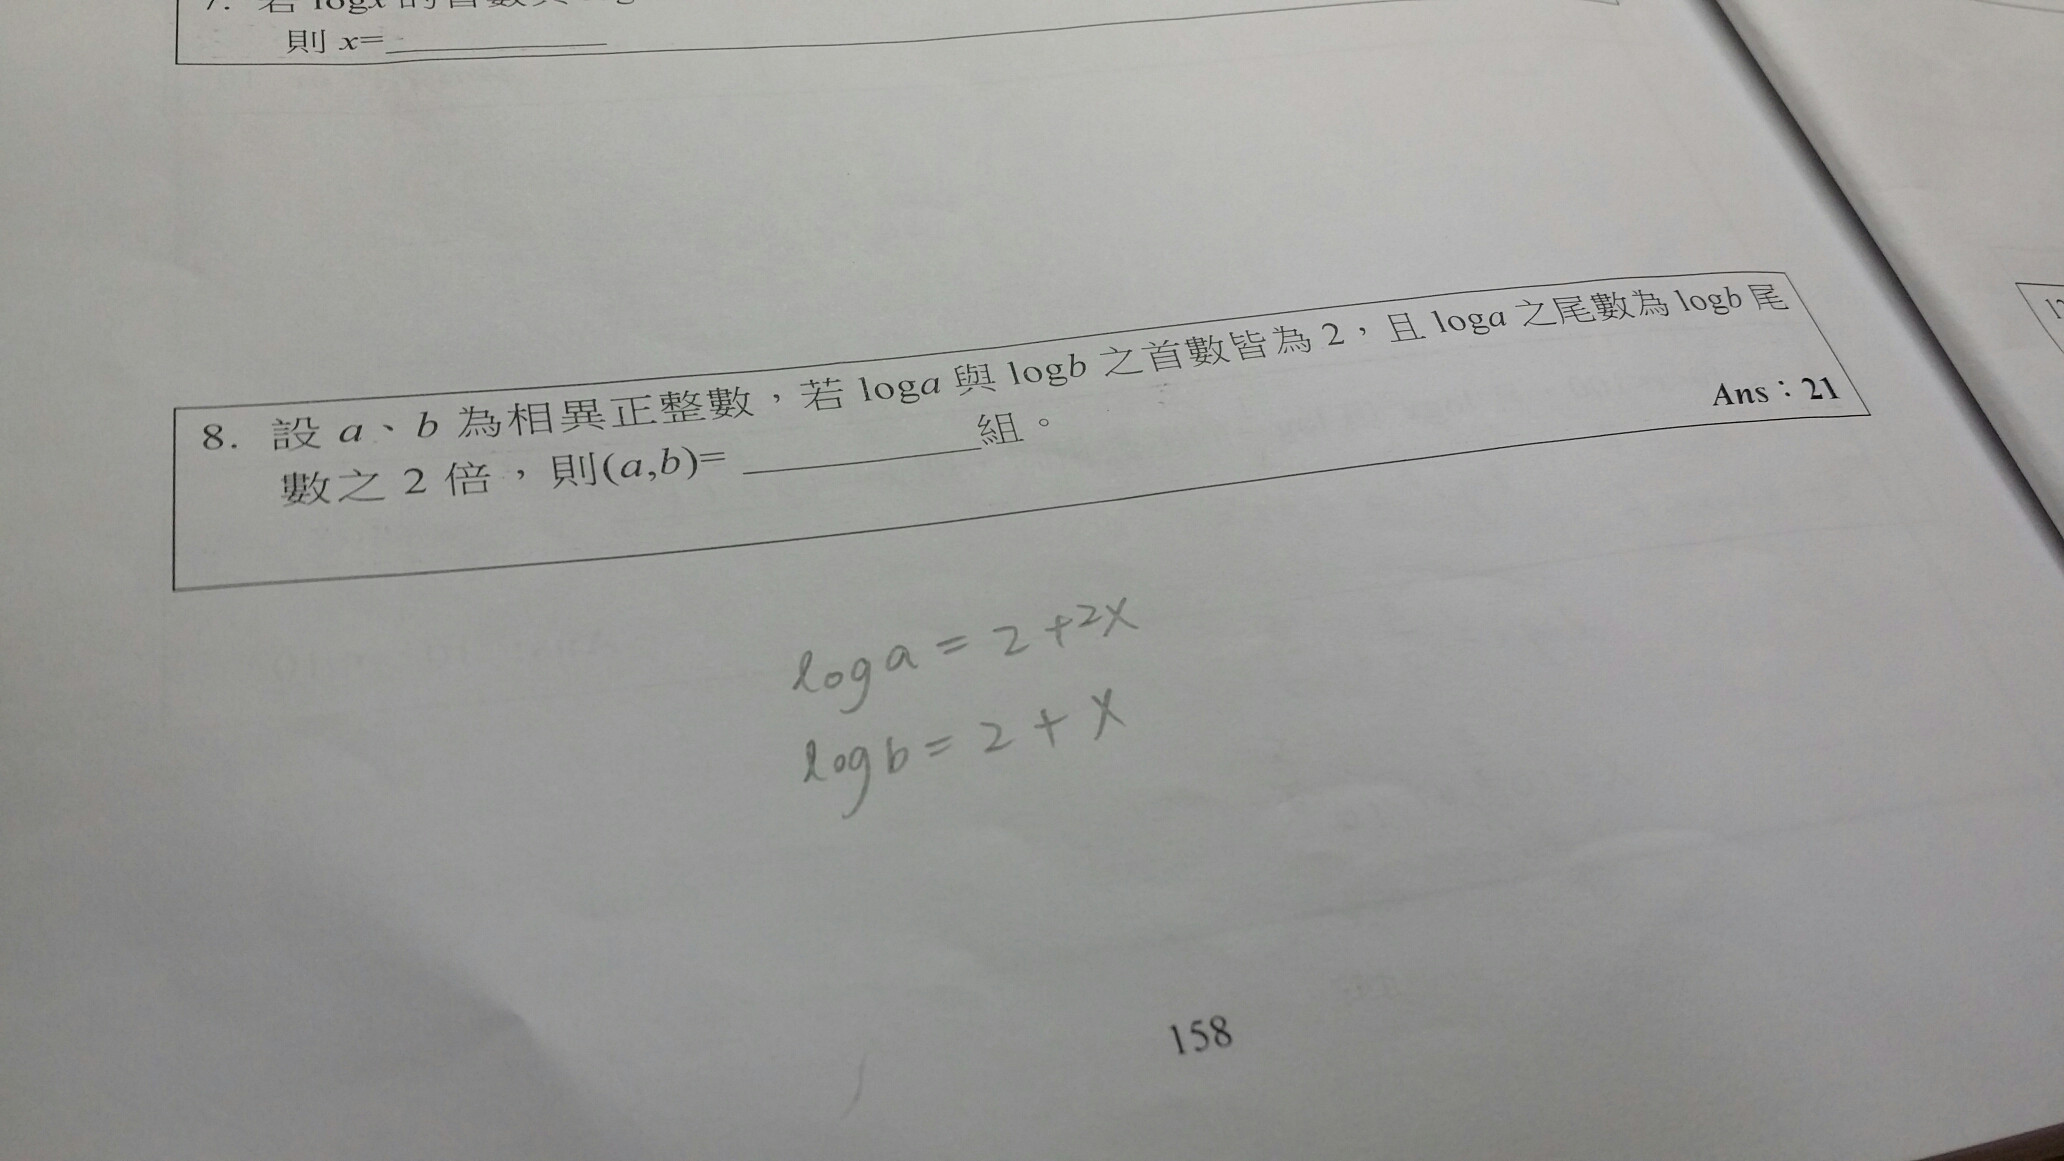 則 x=
8. 設 a、b 為相異正整數，若 loga 與 logb 之首數皆為 2，且 loga 之尾數為 logb 尾
數之 2 倍，則(a,b)= ____________組。
Ans：21
log a = 2 + 2x
log b = 2 + x
158